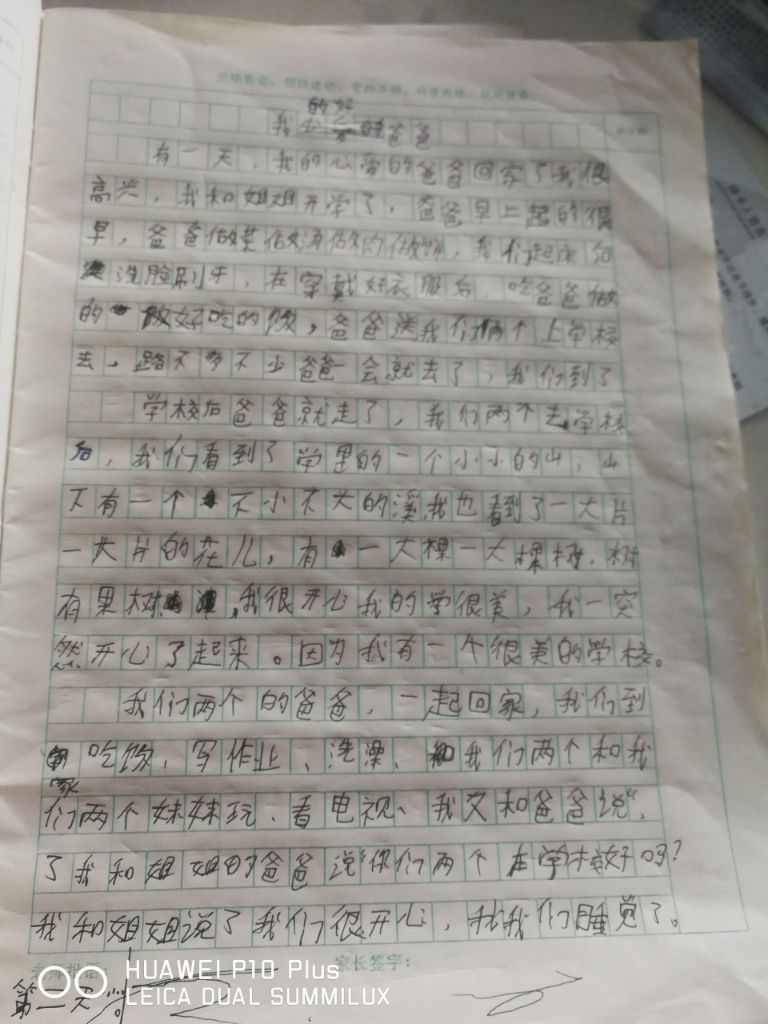 的好
我 爸爸
有一天，我的心 的爸爸回家了我很
高兴，我和姐姐开学了，爸爸早上起的很
早，爸爸做菜做汤做肉做饼，我们起床后
洗脸刷牙，在穿戴好衣服后，吃爸爸做
的 做好吃的饭，爸爸送我们两个上学校
去，路不多不少爸爸一会就去了，我们到了
学校后爸爸就走了，我们两个去学校
后，我们看到了学里的一个小小的山，山
下有一个 不小不大的溪，我也看到了一大片
一大片的花儿，有 一大棵一大棵树，树
有果树 ，我很开心我的学很美，我一突
然开心了起来。因为我有一个很美的学校。
我们两个的爸爸，一起回家，我们到
家 吃饭、写作业、洗澡、 和我们两个和我
们两个妹妹玩、看电视、我又和爸爸说“，
了我和姐姐的爸爸说“你们两个在学校好吗?
我和姐姐说了我们很开心， 我们睡觉了。
家长签字：
第一天
HUAWEI P10 Plus
LEICA DUAL SUMMILUX